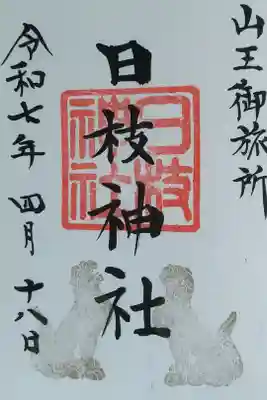 山王御旅所
日枝神社
日枝
神社
令和七年 四月 十八日